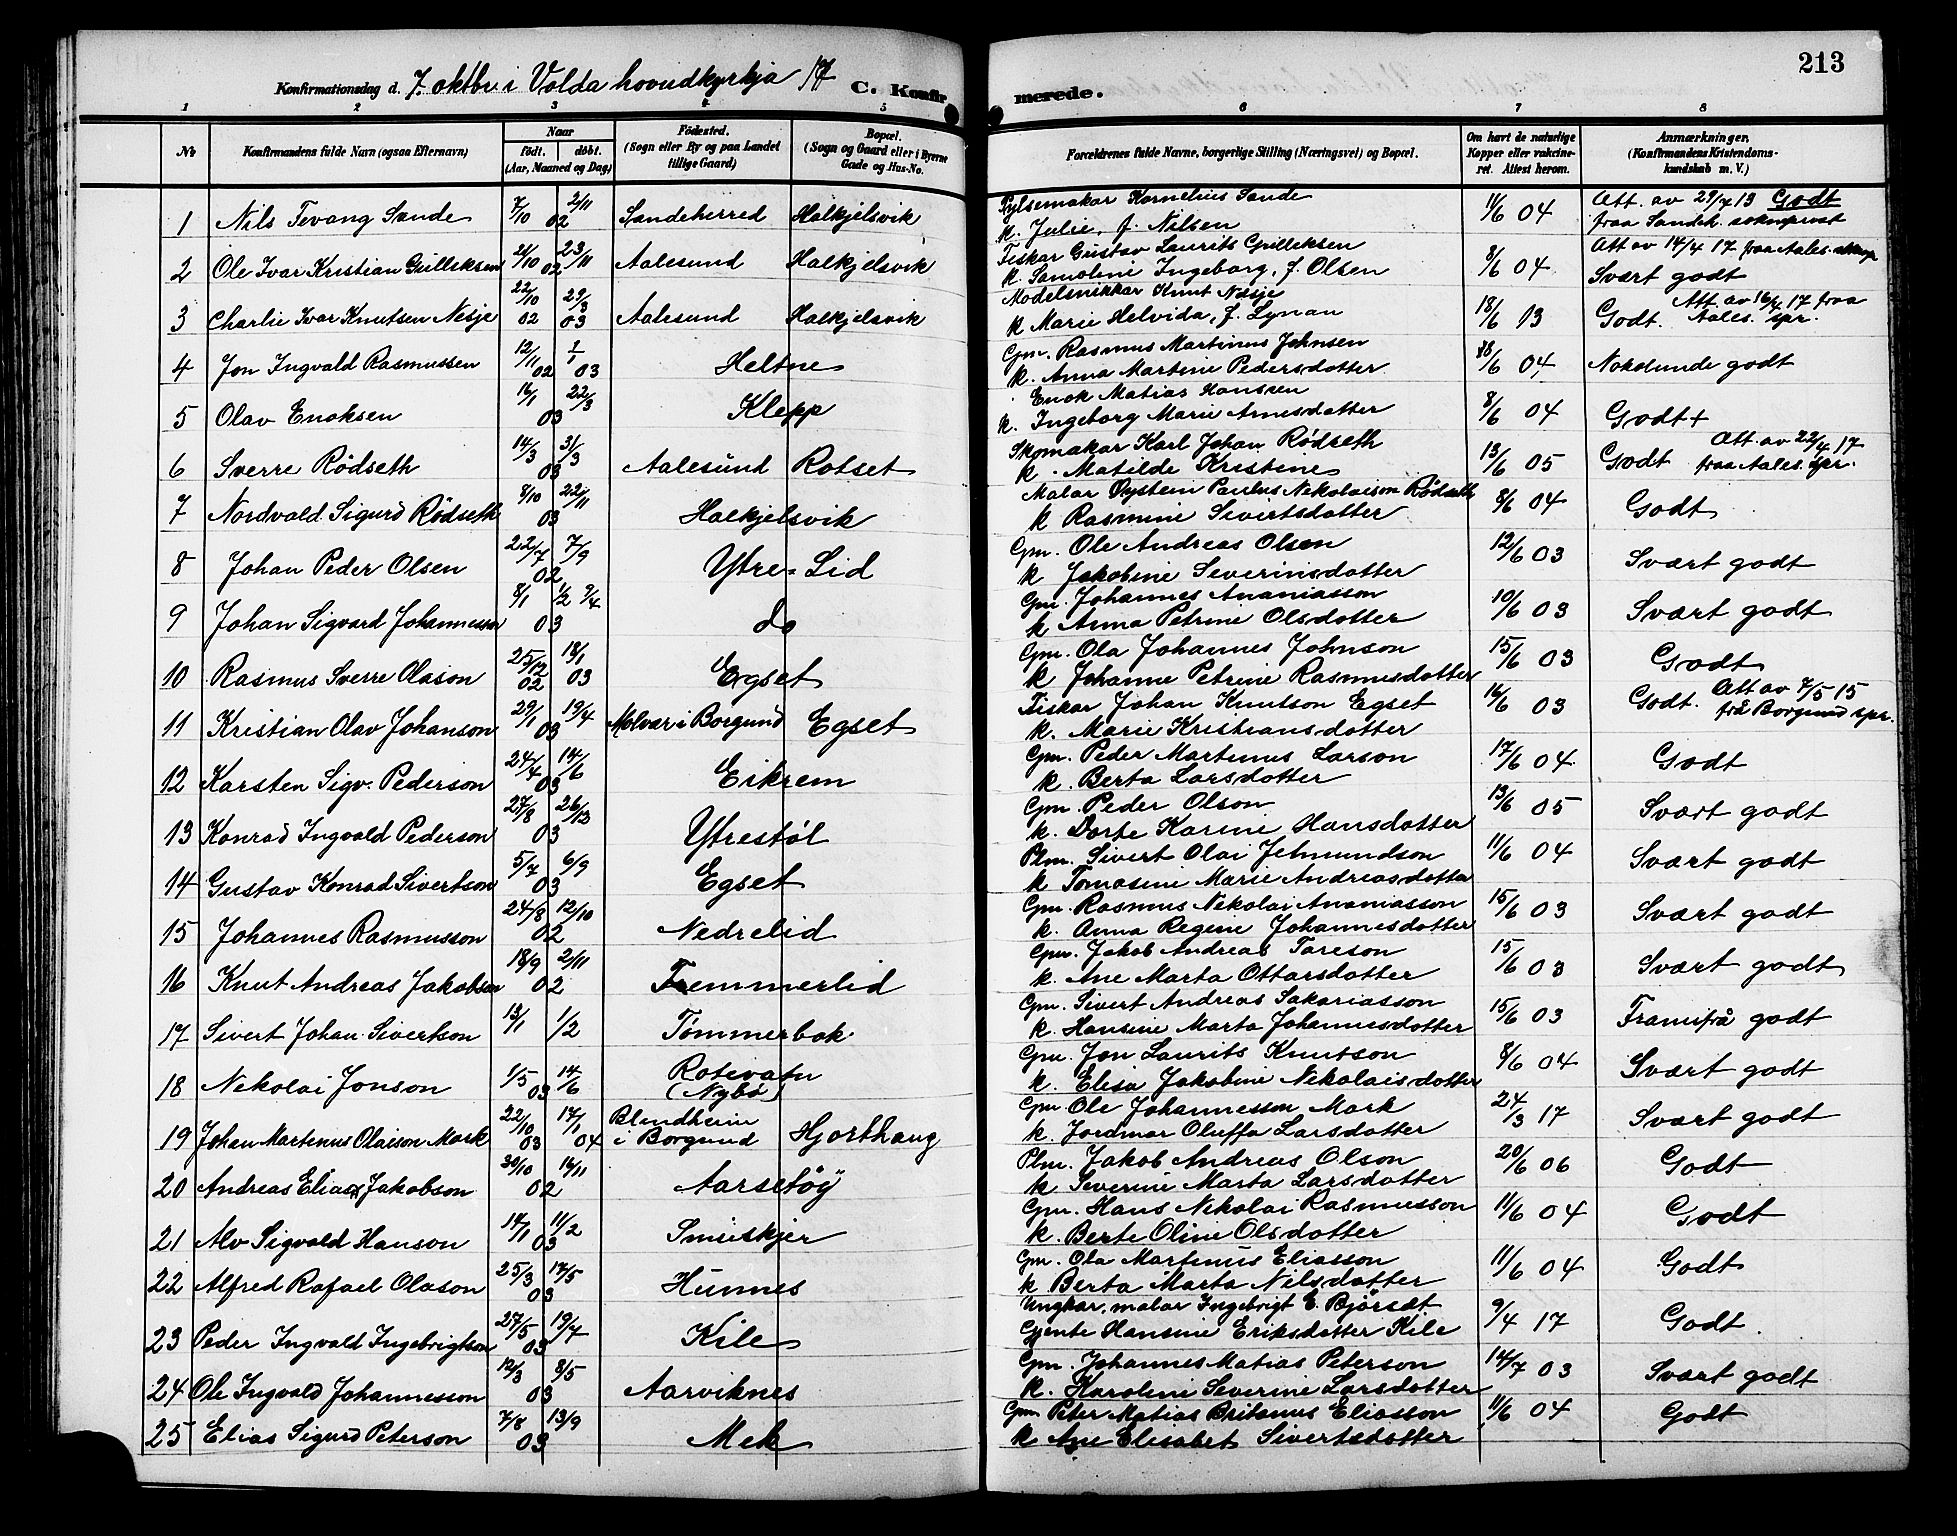 213
Konfirmationsdag d. 7. oktbr i Volda hovudkyrkja 17 C. Konfirmerede.
1 2 3 4 5 6 7 8
№ Konfirmandens fulde Navn (ogsaa Efternavn) Naar født. døbt. (Aar, Maaned og Dag) Fødested. (Sogn eller By og paa Landet tillige Gaard) Bopæl. (Sogn og Gaard eller i Byerne Gade og Hus-No. Forældrenes fulde Navne, borgerlige Stilling (Næringsvei) og Bopæl. Om havt de naturlige Kopper eller vakcineret. Attest herom. Anmærkninger, (Konfirmandens Kristendomskundskab m. V.)
1 Nils Tevang Sande 7/10 02 2/11 Sandeherred Halkjelsvik
Kornelius Sande
k. Julie, f. Nilsen 11/6 04 Att. av 29/4 13 Godt
fraa Sandeh. sokneprest
2 Ole Ivar Kristian Gulliksen 21/10 02 23/11 Aalesund Halkjelsvik
Fiskar Gustav Laurits Gulliksen
k. Samoline Ingeborg, f. Olsen 8/6 04 Att av 14/4 17 fraa Aales.
Svært godt
3 Charlie Ivar Knutsen Nesje 22/10 02 29/3 03 Aalesund Halkjelsvik
Modelsnikkar Knut Nesje
k Marie Helvida, f. Lynan 18/6 13 Godt. Att. av 16/4 17 fraa
Aales. spr.
4 Jon Ingvald Rasmussen 12/11 02 1/1 03 Heltne
Gm. Rasmus Martinus Johnsen
k. Anna Martine Pedersdotter /6 04 Nokolunde godt
5 Olav Enoksen 16/1 03 22/3 Klepp
Enok Matias Hanssen
k. Ingeborg Marie Arnesdotter 8/6 04 Godt +
6 Sverre Rødseth 14/3 03 31/3 Aalesund Rotset
Skomakar Karl Johan Rødseth
k. Matilde Kristine 13/6 05 Godt Att. av 22/4 17
fraa Aales. spr.
7 Nordvald Sigurd Rødseth 8/10 03 22/11 Halkjelsvik
Malar Øystein Paulus Nikolaison Rødseth
k Rasmine Sivertsdotter 8/6 04 Godt
8 Johan Peder Olsen 22/7 02 7/9 Ytre-Lid
Gm. Ole Andreas Olsen
k Jakobine Severinsdotter 12/6 03 Svært godt
9 Johan Sigvard Johannesson 8/1 03 1/2 9/4 do
Gm. Johannes Ananiasson
k Anna Petrine Olsdotter 10/6 03 Svært godt
10 Rasmus Sverre Olason 25/12 02 18/1 03 Egset
Gm. Ola Johannes Johnson
k Johanne Petrine Rasmusdotter 15/6 03 Godt
11 Kristian Olav Johanson 29/1 03 19/4 Molvær i Borgund Egset
Fiskar Johan Knutson Egset
k. Marie Kristiansdotter 16/6 03 Godt. Att av 7/5 15
frå Borgund spr.
12 Karsten Sigv. Pederson 24/4 03 14/6 Eikrem
Gm. Peder Martinus Larson
k. Berta Larsdotter 17/6 04 Godt
13 Konrad Ingvald Pederson 27/8 03 26/12 Ytrestøl
Gm. Peder Olson
k. Dorte Karine Hansdotter 13/6 05 Svært godt
14 Gustav Konrad Sivertson 5/7 03 6/9 Egset
Plm. Sivert Olai Jetmundson
k Tomasine Marie Andreasdotter 11/6 04 Svært godt
15 Johannes Rasmusson 24/8 02 12/10 Nedrelid
Gm. Rasmus Nikolai Ananiasson
k. Anna Regine Johannesdotter 15/6 03 Svært godt
16 Knut Andreas Jakobson 18/9 02 2/11 Fremmerlid
Gm. Jakob Andreas Tareson
k. Ane Marta Ottarsdotter 15/6 03 Svært godt
17 Sivert Johan Sivertson 13/1 1/2 Tømmerbak
Gm. Sivert Andreas Sakariasson
k. Hansine Marta Johannesdotter 15/6 03 Framifrå godt
18 Nikolai Jonson 1/5 03 14/6 Rotevatn
(Nybø)
Gm. Jon Laurits Knutson
k. Elisa Jakobine Nikolaisdotter 8/6 04 Svært godt
19 Johan Martinus Olaison Mork 22/10 03 17/1 04 Blindheim
i Borgund Hjorthaug
Gm Ole Johannesson Mork
k. Jordmor Oluffa Larsdotter 24/3 17 Svært godt
20 Andreas Elias Jakobson 30/10 02 16/11 Aarsetøy
Plm. Jakob Andreas Olson
k Severine Marta Larsdotter 20/6 06 Godt
21 Alv Sigvald Hanson 14/1 03 11/2 Smiskjer
Gm. Hans Nikolai Rasmusson
k. Berte Oline Olsdotter 11/6 04 Godt
22 Alfred Rafael Olason 25/3 03 17/5 Hunnes
Gm. Ola Martinus Eliasson
k Berta Marta Nilsdotter 11/6 04 Godt
23 Peder Ingvald Ingebrigtson 27/5 03 19/7 Kile
Ungkar, malar Ingebrigt E. Bjørsæt
Gjente Hansine Eriksdotter Kile 9/4 17 Godt.
24 Ole Ingvald Johannesson 12/3 03 8/5 Aarviknes
Gm. Johannes Matias Peterson
k. Karoline Severine Larsdotter 14/7 03 Svært godt
25 Elias Sigurd Peterson 7/8 03 13/9 Mek
Gm Peter Matias Britanus Eliasson
k Ane Elisabet Sivertsdotter 11/6 04 Godt